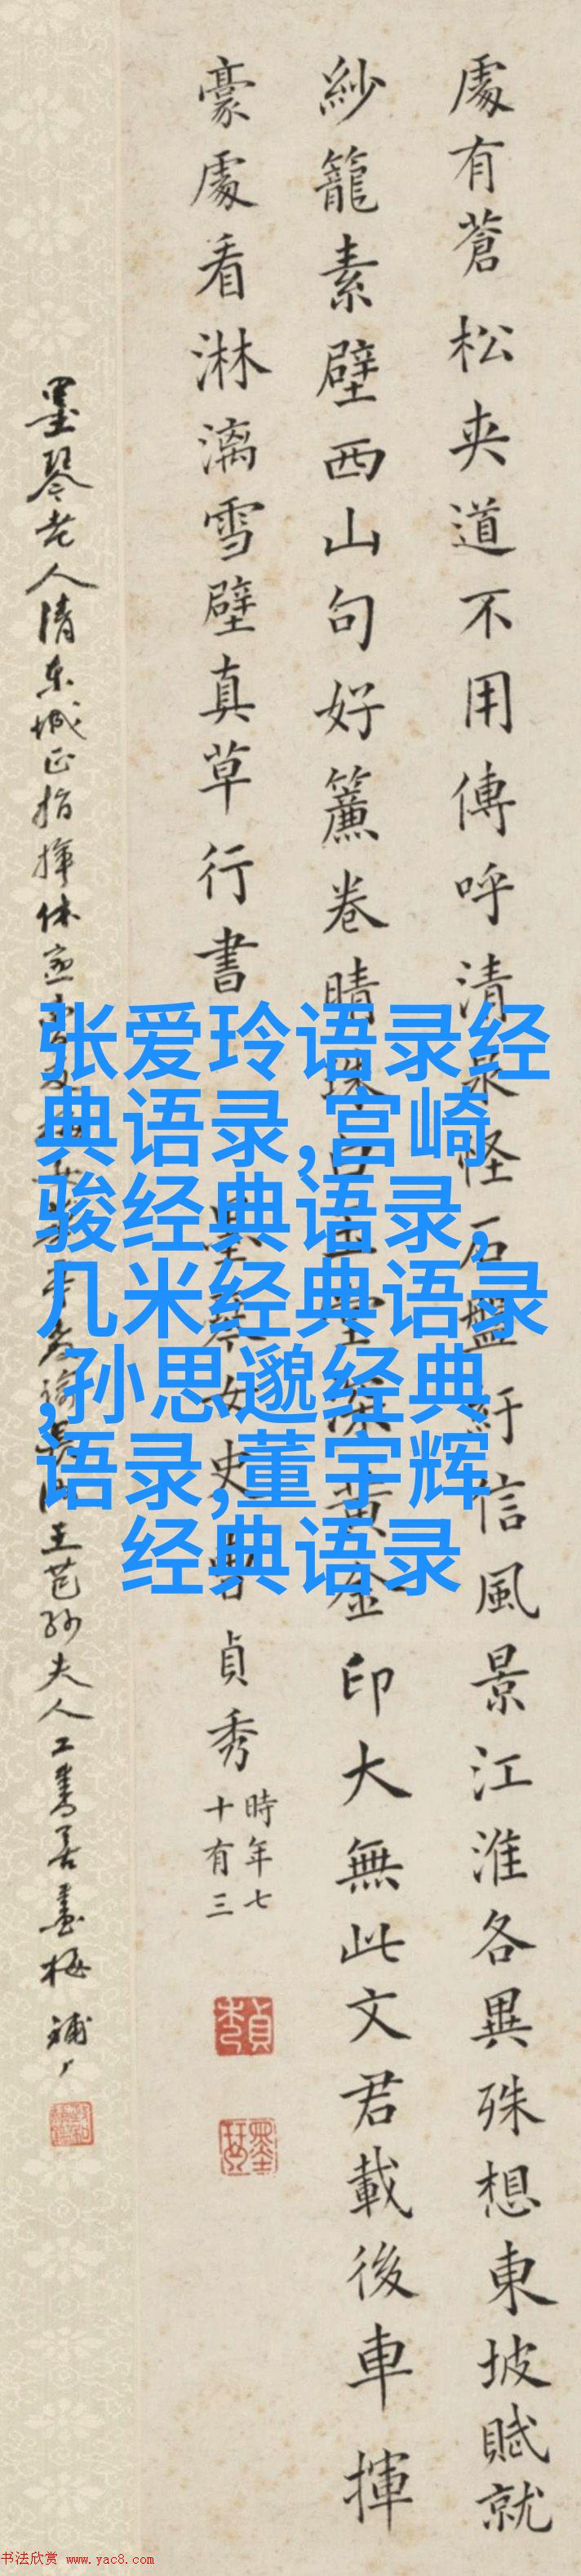 處有蒼松夾道不用傳呼清泉怪石盤紆信風景江淮各異殊想東坡賦就
紗籠素壁西山句好簾卷晴珠白玉堂深黃金印大無此文君載後車揮
豪處看淋漓雪壁真草行書
墨琴女史曹貞秀
時年七
十有三
墨琴老人清东城正指揮
王芑孙夫人工書善畫梅
张爱玲语录经
典语录,宫崎
骏经典语录,
几米经典语录
,孙思邈经典
语录,董宇辉
经典语录
书法欣赏 www.yac8.com